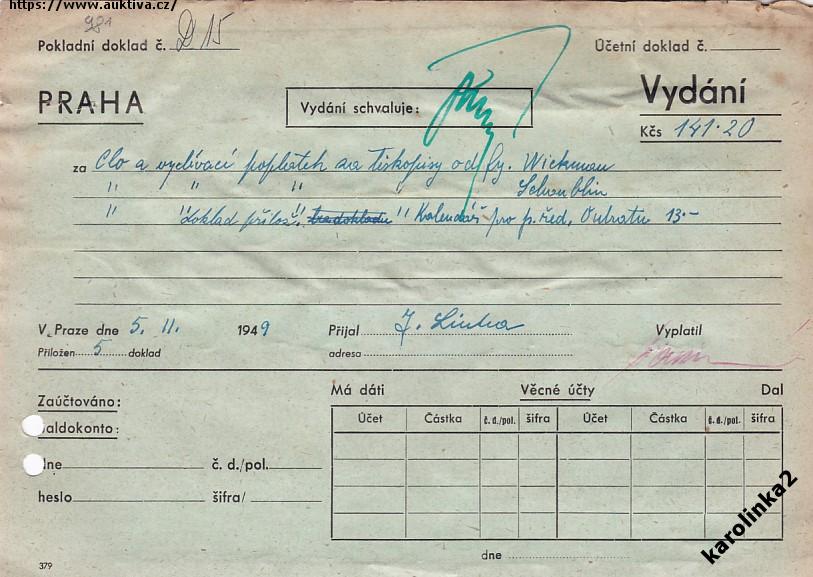 https://www.auktiva.cz/
981
Pokladní doklad č. D 15
Účetní doklad č.
PRAHA
Vydání schvaluje:
Vydání
Kčs 141·20
za Clo a vyclívací poplatek za tiskopisy od fy. Wickman
" " " Schaublin
" "doklad přilož." Kalendář pro p. řed. Outratu 13.-
V Praze dne 5. II. 1949
Přijal
Vyplatil
Přiložen 5 doklad
adresa
Zaúčtováno:
Má dáti Věcné účty Dal
Účet Částka č. d./pol. šifra Účet Částka č. d./pol. šifra
aldokonto:
dne č. d./pol.
heslo šifra/
dne
379
karolinka2